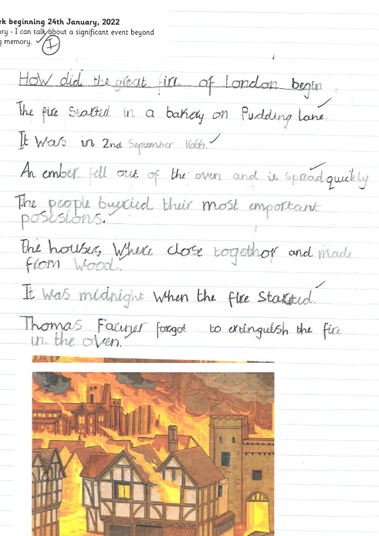 ek beginning 24th January, 2022
ory - I can talk about a significant event beyond
g memory.
I
How did the great fire of london begin
The fire started in a bakery on Pudding Lane
It was in 2nd September 1666.
An ember fell out of the oven and it spread quickly
The people buried their most emportant
posisions.
The houses where close togethor and made
from wood.
It was midnight when the fire started.
Thomas Fariner forgot to extinguish the fire
in the oven.